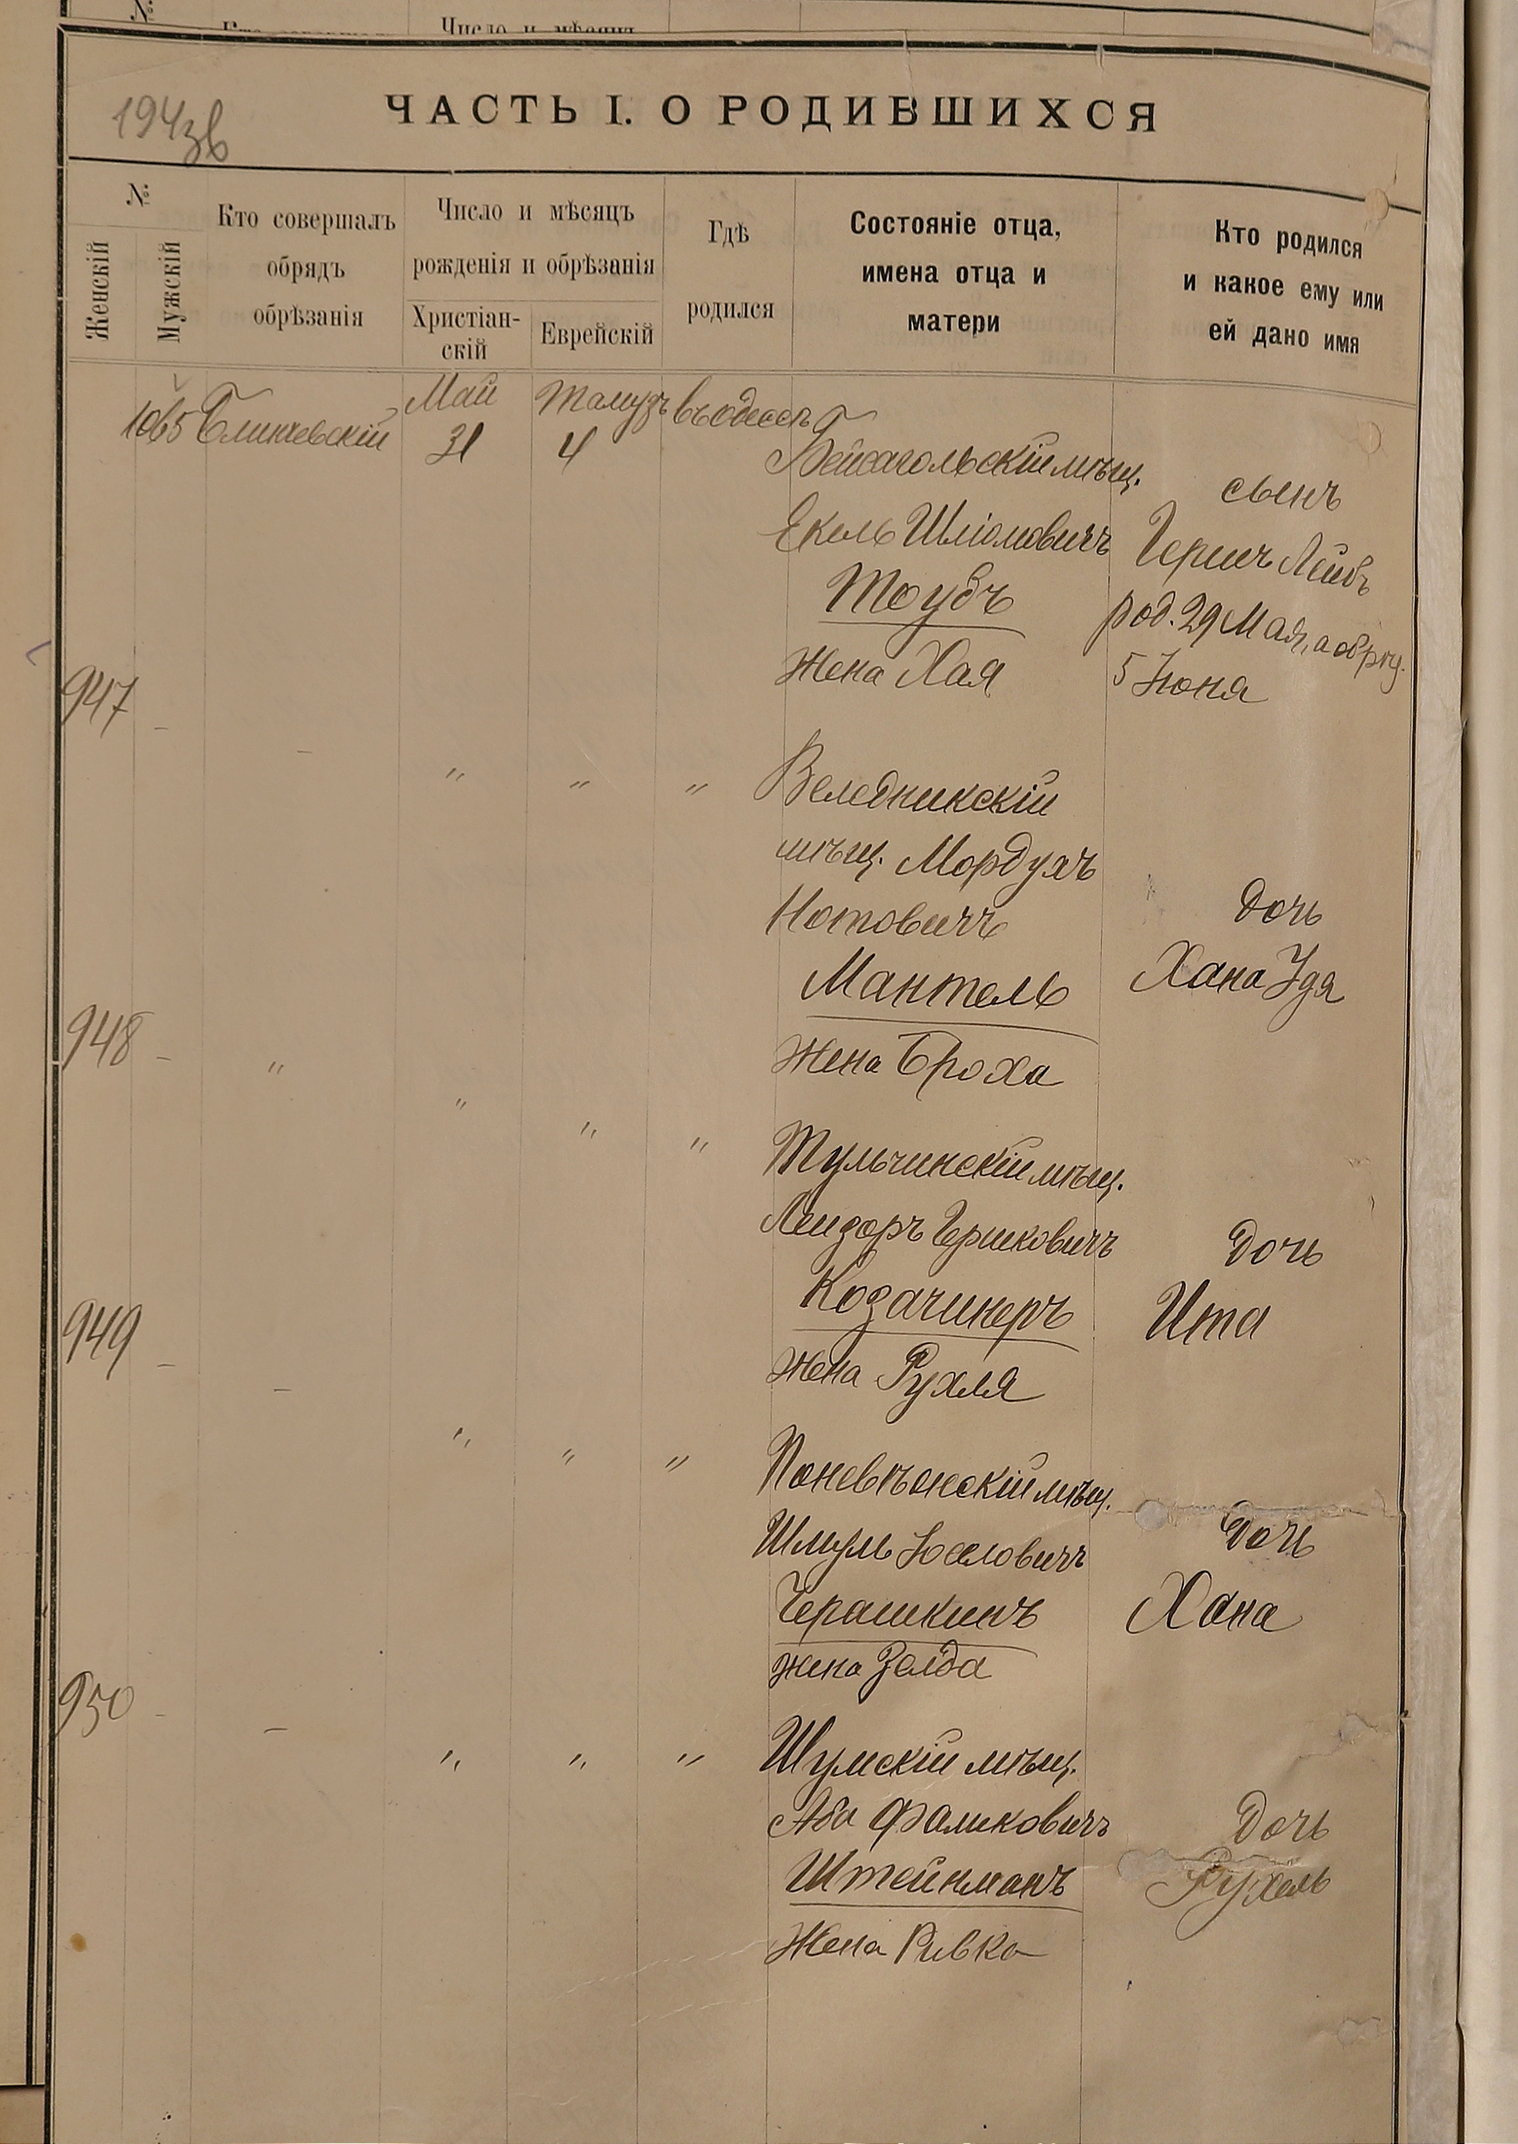 №
Число и мѣсяцъ
194зв
ЧАСТЬ I. О РОДИВШИХСЯ
№
Женскій
Мужскій
Кто совершалъ
обрядъ
обрѣзанія
Число и мѣсяцъ
рожденія и обрѣзанія
Христіан-
скій
Еврейскій
Гдѣ
родился
Состояніе отца,
имена отца и
матери
Кто родился
и какое ему или
ей дано имя
1065
Май
31
Тамузъ
4
въ Одессѣ
Бейсагольскій мѣщ.
Екель Шліомовичъ
Тоубъ
Жена Хая
сынъ
Гершъ Лейбъ
род. 29 Мая, а обрѣз.
5 Іюня
947 - -
" " "
Веледникскій
мѣщ. Мордухъ
Нотовичъ
Мантель
Жена Броха
Дочь
Хана Удя
948 - "
" " "
Тульчинскій мѣщ.
Лейзоръ Гершковичъ
Козачинеръ
Жена Рухля
Дочь
Ита
949 - -
" " "
Поневѣжскій мѣщ.
Шмуль Іоселовичъ
Герашкинъ
жена Зелда
Дочь
Хана
950 - -
" " "
Шумскій мѣщ.
Аба Фаликовичъ
Штейнманъ
Жена Ривка
Дочь
Рухель